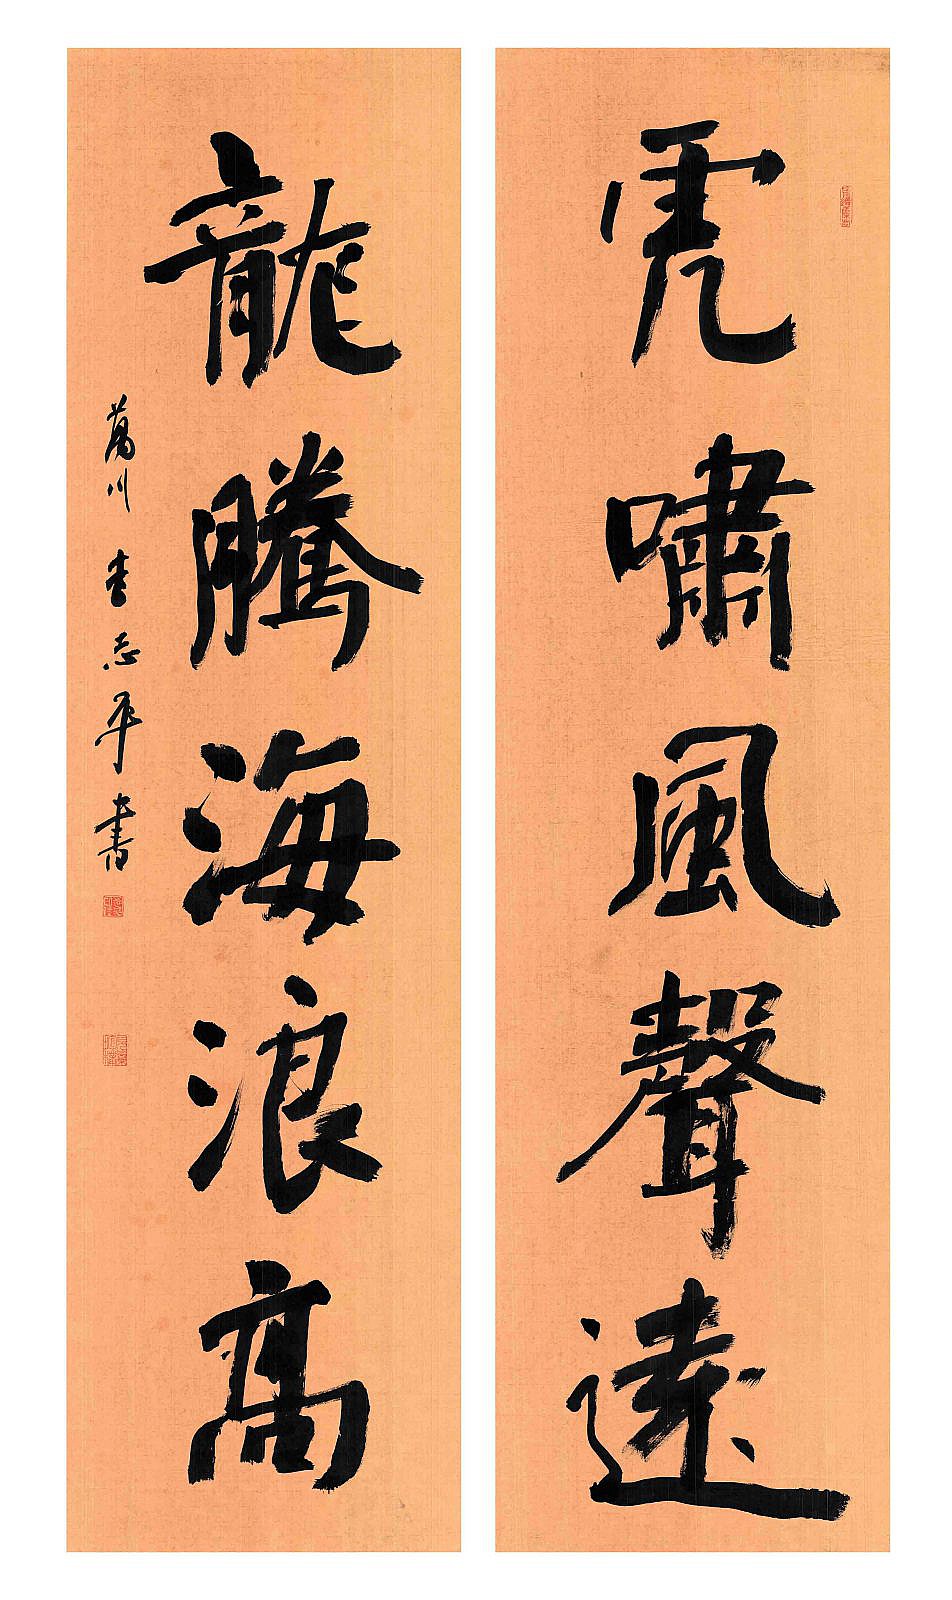 虎嘯風聲遠
龍騰海浪高
萬川 李志平書